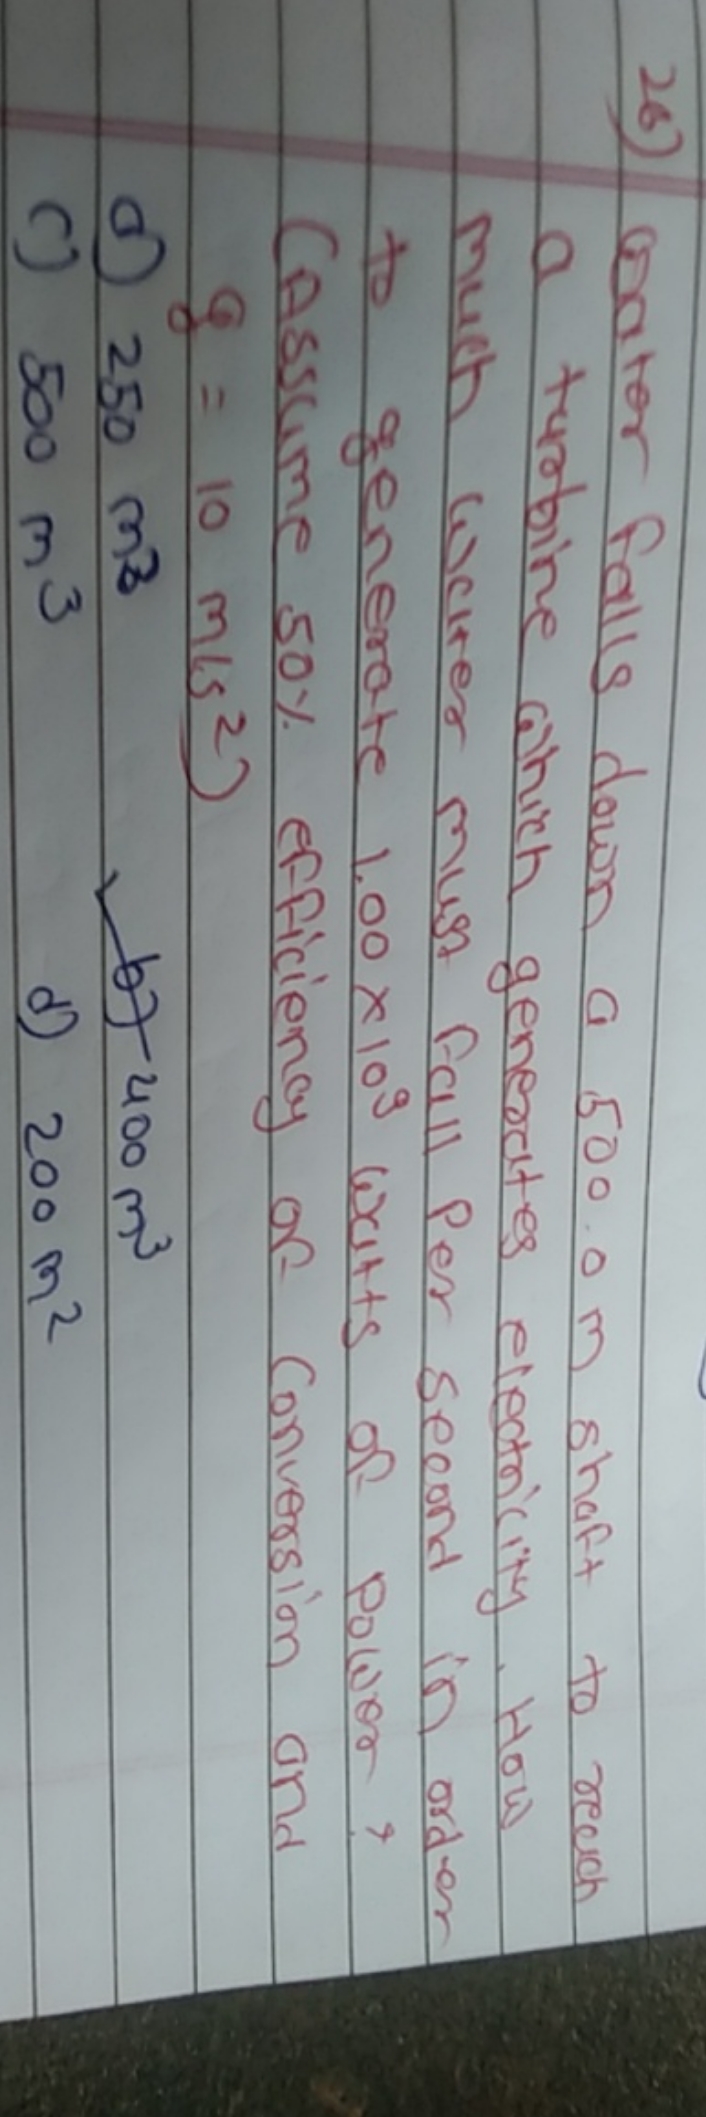 26) water falls down a 500.0 m shaft to reach
a turbine which generates electricity. How
much water must fall per second in order
to generate 1.00 x 10⁹ watts of power?
(Assume 50% efficiency of conversion and
g = 10 m/s²)
a) 250 m³ b) 400 m³
c) 500 m³ d) 200 m²